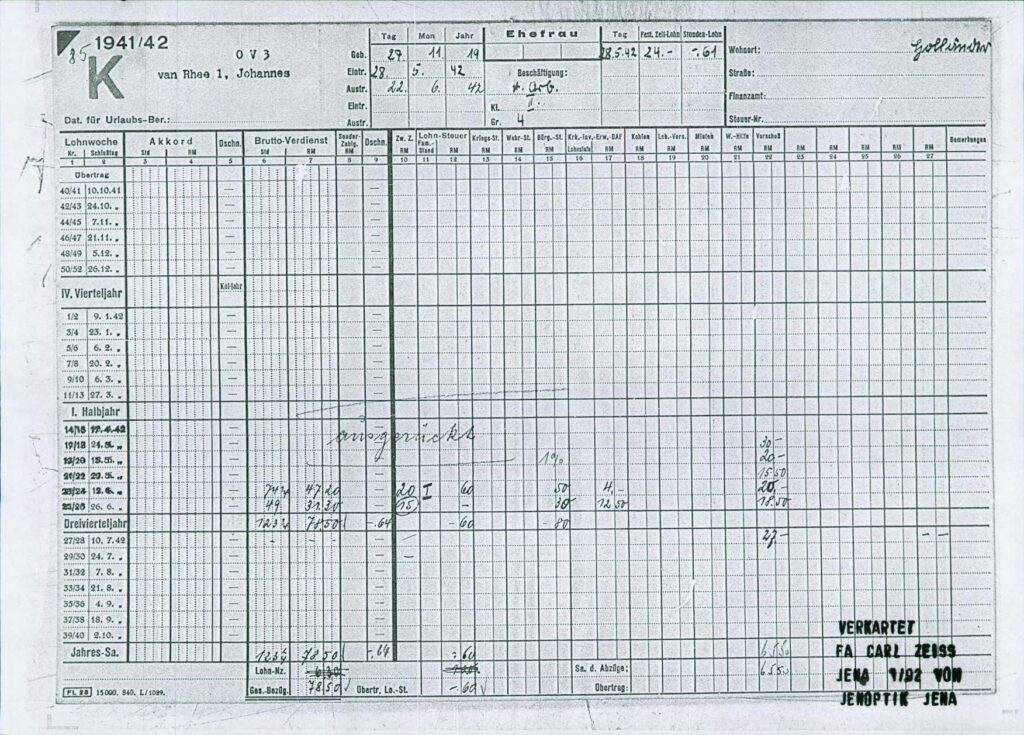 85 1941/42
K
O V 3
van Rhee 1, Johannes
Dat. für Urlaubs-Ber.:
Tag Mon Jahr
Geb. 27 11 19
Eintr. 28. 5. 42
Austr. 22. 6. 42
Eintr.
Austr.
Ehefrau
Beschäftigung:
Kl. II.
Gr. 4
Tag Fest. Zeit-Lohn Stunden-Lohn
28.5.42 24.- -.61
Wohnort: Holländer
Straße:
Finanzamt:
Steuer-Nr.
Lohnwoche Akkord Dschn. Brutto-Verdienst Sonder-Zahlg. Dschn. Zw. Z. Lohn-Steuer Kriegs-St. Wehr-St. Bürg.-St. Krk.-Inv.-Erw.-DAF Kohlen Lok.-Vers. Mieten W.-Hilfe Vorschuß Bemerkungen
Nr. Schlußtag Std RM Std RM RM RM Fam.-Stand RM RM RM RM Lohnstufe RM RM RM RM RM RM RM RM RM RM RM
1 2 3 4 5 6 7 8 9 10 11 12 13 14 15 16 17 18 19 20 21 22 23 24 25 26 27
Übertrag
40/41 10.10.41 —
42/43 24.10. „ —
44/45 7.11. „ —
46/47 21.11. „ —
48/49 5.12. „ —
50/52 26.12. „ —
Kal-jahr
IV. Vierteljahr
1/2 9. 1.42 —
3/4 23. 1. „ —
5/6 6. 2. „ —
7/8 20. 2. „ —
9/10 6. 3. „ —
11/13 27. 3. „ —
I. Halbjahr
ausgerückt
30-
1% 20.-
15.50
74¾ 47.20 20 I 60 50 4.- 20.-
25/26 26. 6. „ 49 31.30 15 - 30 12.50 18.50
Dreivierteljahr 123¾ 78.50 -.64 -60 -80
27/28 10. 7.42 27.-
29/30 24. 7. „ —
31/32 7. 8. „ —
33/34 21. 8. „ —
35/36 4. 9. „ —
37/38 18. 9. „ —
39/40 2.10. „ —
Jahres-Sa. 123¾ 78.50 -.64 -.60 65.50
Lohn-Nz. Sa. d. Abzüge: 65.50
Ges. Bezüg. 78.50 Übertr. Lo.-St. -60 Übertrag:
FL 28 15000. 840. L/1029.
VERKARTET
FA CARL ZEISS
JENA 1/92 VON
JENOPTIK JENA